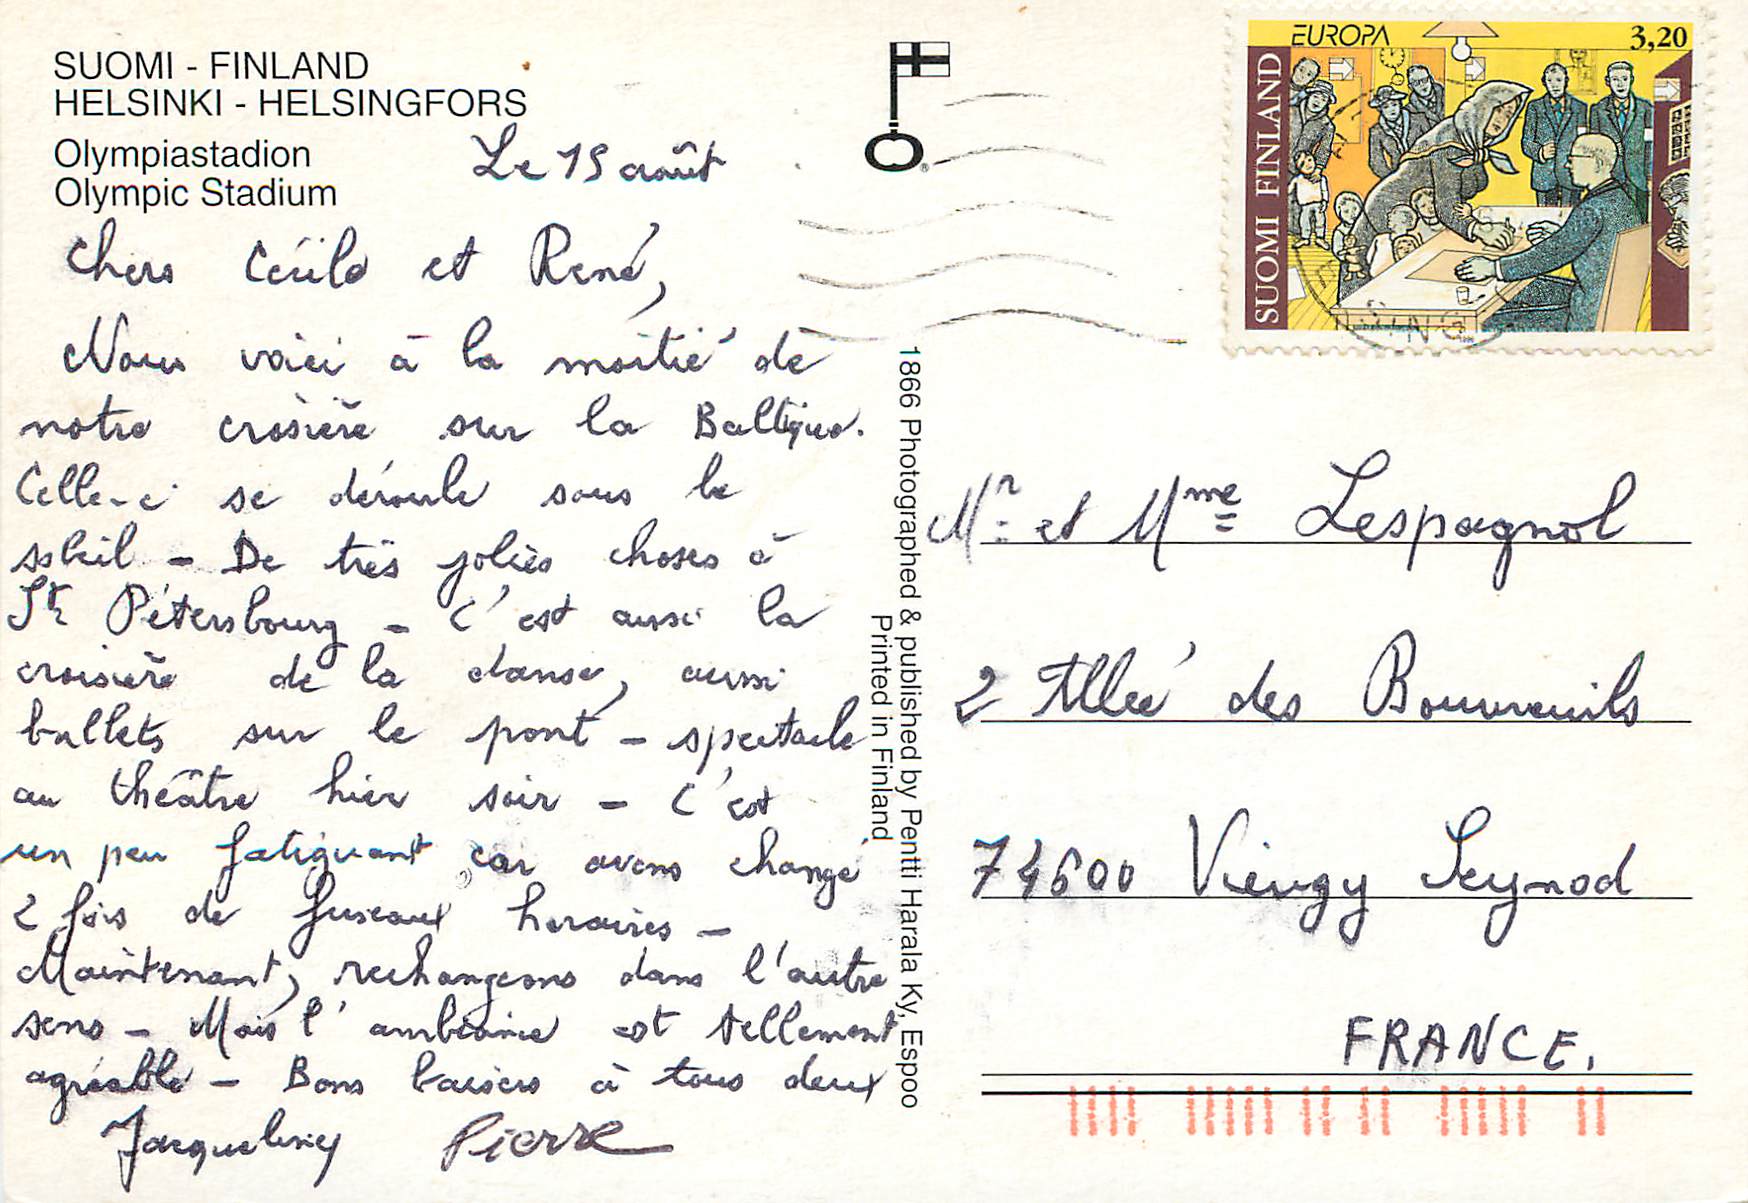 SUOMI - FINLAND
HELSINKI - HELSINGFORS
Olympiastadion
Olympic Stadium
Le 15 août
Chers Cécile et René,
Nous voici à la moitié de
notre croisière sur la Baltique.
Celle-ci se déroule sous le
soleil - De très jolies choses à
St Pétersbourg - C'est aussi la
croisière de la danse, aussi
ballets sur le pont - spectacle
au théâtre hier soir - C'est
un peu fatiguant car avons changé
2 fois de fuseaux horaires -
Maintenant, rechangeons dans l'autre
sens - Mais l'ambiance est tellement
agréable - Bons baisers à tous deux
Jacqueline Pierre
1866 Photographed & published by Pentti Harala Ky, Espoo
Printed in Finland
EUROPA
3,20
SUOMI FINLAND
Mr et Mme Lespagnol
2 Allée des Bouvreuils
74600 Vieugy Seynod
FRANCE.